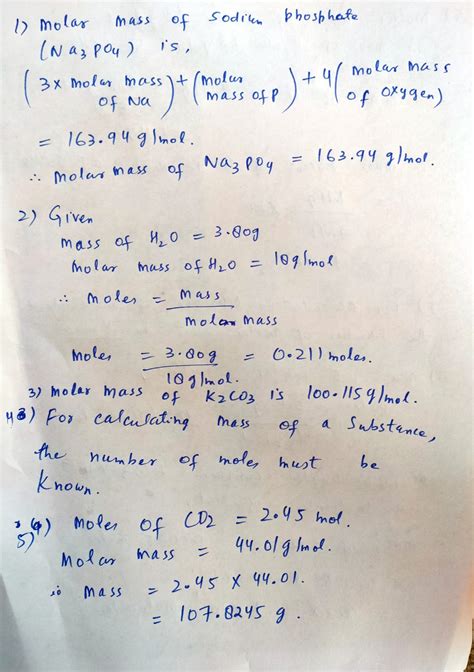 1) Molar mass of sodium phosphate
(Na3PO4) is,
(3x molar mass of Na) + (molar mass of P) + 4(molar mass of oxygen)
= 163.94 g/mol.
∴ Molar mass of Na3PO4 = 163.94 g/mol.
2) Given
mass of H2O = 3.80g
Molar mass of H2O = 18g/mol
∴ moles = mass / molar mass
moles = 3.80g / 18g/mol. = 0.211 moles.
3) Molar mass of K2CO3 is 100.115 g/mol.
4) For calculating mass of a substance,
the number of moles must be
known.
5) Moles of CO2 = 2.45 mol.
Molar mass = 44.01g/mol.
∴ Mass = 2.45 X 44.01.
= 107.8245 g.